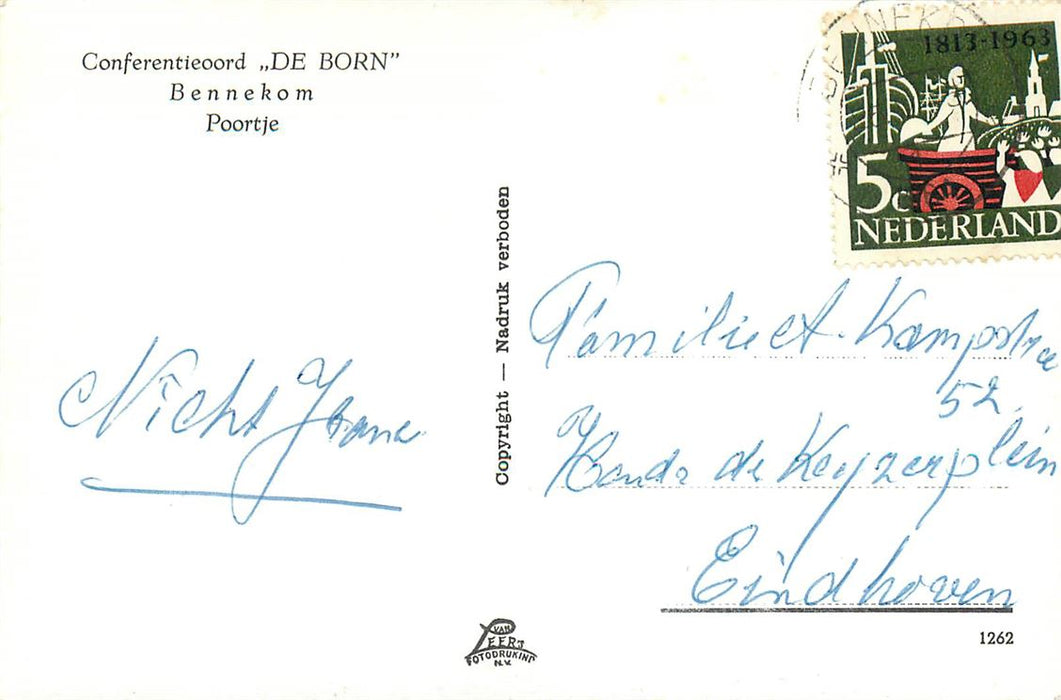 Conferentieoord „DE BORN”
Bennekom
Poortje
1813-1963
5c
NEDERLAND
Copyright — Nadruk verboden
Familie A. Kampstra
52.
de Keyzerplein
Eindhoven
Nicht
VAN
LEER'S
FOTODRUKIND
N.V.
1262